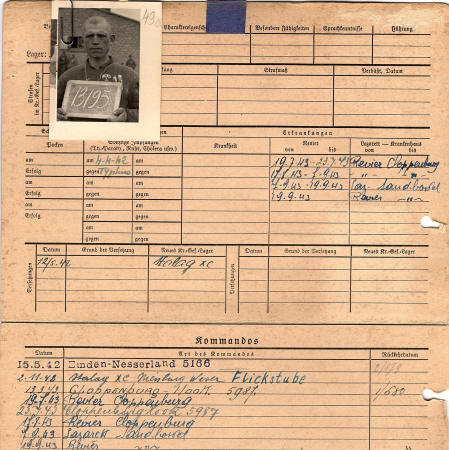 49
13195
Charaktereigenschaft
Besondere Fähigkeiten
Sprachkenntnisse
Führung
Lager:
Strafen im Kr.-Gef.-Lager
Strafmaß
Verbüßt, Datum
Pocken
Sonstige Impfungen (Ty. Paraty., Ruhr, Cholera usw.)
Erkrankungen
Krankheit
Revier von bis
Lazarett — Krankenhaus von bis
am am 4.4.42 am
Erfolg gegen Typhus gegen
am am am
Erfolg gegen gegen
am am am
Erfolg gegen gegen
am am
gegen gegen
19.7.43 - 23.7.43 Revier Cloppenburg
17.8.43 - 7.9.43 " "
7.9.43 - 19.9.43 Laz. Sandbostel
19.9.43 Revier " "
Versetzungen
Datum Grund der Versetzung Neues Kr.-Gef.-Lager Datum Grund der Versetzung Neues Kr.-Gef.-Lager
12/5.42 Stalag XC
Kommandos
Datum Art des Kommandos Rückkehrdatum
15.5.42 Emden-Nesserland 5166
2.11.42 Stalag XC Nienburg Weser Flickstube
Cloppenburg 5987
19.7.43 Revier Cloppenburg
23.7.43 Cloppenburg 5987
17.8.43 Revier Cloppenburg
7.9.43 Lazarett Sandbostel
19.9.43 Revier